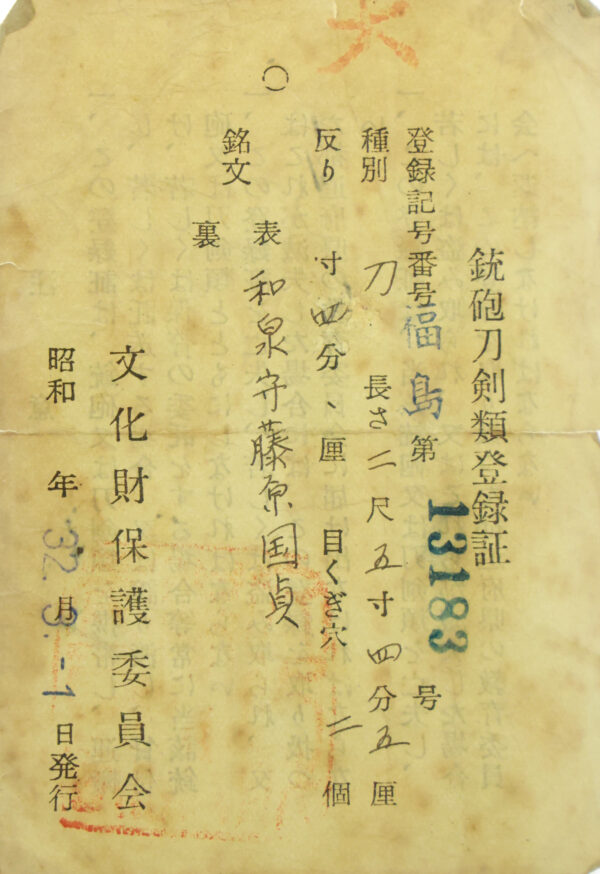 銃砲刀剣類登録証
登録記号番号 福島 第 13183 号
種別 刀 長さ 二尺五寸四分五厘
反り 寸四分、厘 目くぎ穴 二個
銘文 表 和泉守藤原国貞
裏
文化財保護委員会
昭和 年 32 月 3 -1 日発行